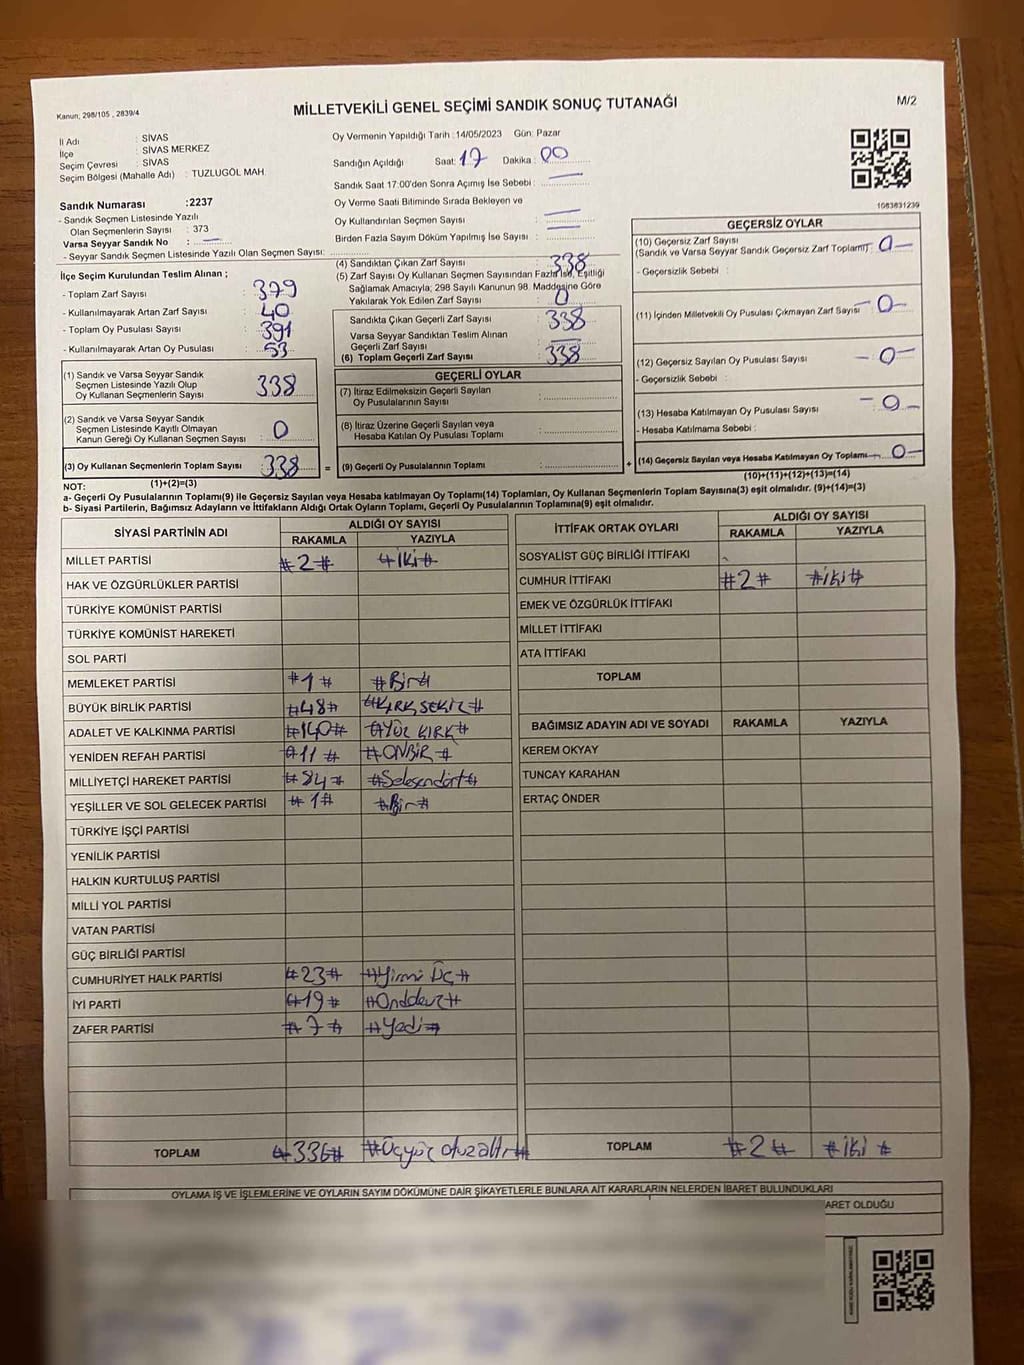 Kanun; 298/105 , 2839/4
MİLLETVEKİLİ GENEL SEÇİMİ SANDIK SONUÇ TUTANAĞI
M/2
İl Adı : SİVAS
İlçe : SİVAS MERKEZ
Seçim Çevresi : SİVAS
Seçim Bölgesi (Mahalle Adı) : TUZLUGÖL MAH.
Oy Vermenin Yapıldığı Tarih :14/05/2023 Gün: Pazar
Sandığın Açıldığı Saat: 17 Dakika : 00
Sandık Saat 17:00'den Sonra Açımış İse Sebebi :
Oy Verme Saati Bitiminde Sırada Bekleyen ve
Oy Kullandırılan Seçmen Sayısı :
Birden Fazla Sayım Döküm Yapılmış İse Sayısı :
1083831239
Sandık Numarası :2237
- Sandık Seçmen Listesinde Yazılı
Olan Seçmenlerin Sayısı : 373
Varsa Seyyar Sandık No :
- Seyyar Sandık Seçmen Listesinde Yazılı Olan Seçmen Sayısı:
İlçe Seçim Kurulundan Teslim Alınan ;
- Toplam Zarf Sayısı : 379
- Kullanılmayarak Artan Zarf Sayısı : 40
- Toplam Oy Pusulası Sayısı : 391
- Kullanılmayarak Artan Oy Pusulası : 53
(1) Sandık ve Varsa Seyyar Sandık
Seçmen Listesinde Yazılı Olup
Oy Kullanan Seçmenlerin Sayısı : 338
(2) Sandık ve Varsa Seyyar Sandık
Seçmen Listesinde Kayıtlı Olmayan
Kanun Gereği Oy Kullanan Seçmen Sayısı : 0
(3) Oy Kullanan Seçmenlerin Toplam Sayısı : 338
(1)+(2)=(3)
(4) Sandıktan Çıkan Zarf Sayısı : 338
(5) Zarf Sayısı Oy Kullanan Seçmen Sayısından Fazla İse, Eşitliği
Sağlamak Amacıyla; 298 Sayılı Kanunun 98. Maddesine Göre
Yakılarak Yok Edilen Zarf Sayısı : 0
Sandıkta Çıkan Geçerli Zarf Sayısı : 338
Varsa Seyyar Sandıktan Teslim Alınan
Geçerli Zarf Sayısı :
(6) Toplam Geçerli Zarf Sayısı : 338
GEÇERLİ OYLAR
(7) İtiraz Edilmeksizin Geçerli Sayılan
Oy Pusulalarının Sayısı :
(8) İtiraz Üzerine Geçerli Sayılan veya
Hesaba Katılan Oy Pusulası Toplamı :
= (9) Geçerli Oy Pusulalarının Toplamı :
GEÇERSİZ OYLAR
(10) Geçersiz Zarf Sayısı
(Sandık ve Varsa Seyyar Sandık Geçersiz Zarf Toplamı) : 0 -
- Geçersizlik Sebebi :
(11) İçinden Milletvekili Oy Pusulası Çıkmayan Zarf Sayısı : - 0 -
(12) Geçersiz Sayılan Oy Pusulası Sayısı : - 0 -
- Geçersizlik Sebebi :
(13) Hesaba Katılmayan Oy Pusulası Sayısı : - 0 -
- Hesaba Katılmama Sebebi :
+ (14) Geçersiz Sayılan veya Hesaba Katılmayan Oy Toplamı : - 0 -
(10)+(11)+(12)+(13)=(14)
NOT:
a- Geçerli Oy Pusulalarının Toplamı(9) ile Geçersiz Sayılan veya Hesaba katılmayan Oy Toplamı(14) Toplamları, Oy Kullanan Seçmenlerin Toplam Sayısına(3) eşit olmalıdır. (9)+(14)=(3)
b- Siyasi Partilerin, Bağımsız Adayların ve İttifakların Aldığı Ortak Oyların Toplamı, Geçerli Oy Pusulalarının Toplamına(9) eşit olmalıdır.
SİYASİ PARTİNİN ADI ALDIĞI OY SAYISI
RAKAMLA YAZIYLA
MİLLET PARTİSİ #2# #iki#
HAK VE ÖZGÜRLÜKLER PARTİSİ
TÜRKİYE KOMÜNİST PARTİSİ
TÜRKİYE KOMÜNİST HAREKETİ
SOL PARTİ
MEMLEKET PARTİSİ #1# #Bir#
BÜYÜK BİRLİK PARTİSİ #48# #KIRK SEKİZ#
ADALET VE KALKINMA PARTİSİ #140# #YÜZ KIRK#
YENİDEN REFAH PARTİSİ #11# #ONBİR#
MİLLİYETÇİ HAREKET PARTİSİ #84# #Seksendört#
YEŞİLLER VE SOL GELECEK PARTİSİ #1# #Bir#
TÜRKİYE İŞÇİ PARTİSİ
YENİLİK PARTİSİ
HALKIN KURTULUŞ PARTİSİ
MİLLİ YOL PARTİSİ
VATAN PARTİSİ
GÜÇ BİRLİĞİ PARTİSİ
CUMHURİYET HALK PARTİSİ #23# #Yirmi Üç#
İYİ PARTİ #19# #Ondokuz#
ZAFER PARTİSİ #7# #Yedi#
TOPLAM #336# #Üçyüz otuzaltı#
İTTİFAK ORTAK OYLARI ALDIĞI OY SAYISI
RAKAMLA YAZIYLA
SOSYALİST GÜÇ BİRLİĞİ İTTİFAKI
CUMHUR İTTİFAKI #2# #iki#
EMEK VE ÖZGÜRLÜK İTTİFAKI
MİLLET İTTİFAKI
ATA İTTİFAKI
TOPLAM
BAĞIMSIZ ADAYIN ADI VE SOYADI RAKAMLA YAZIYLA
KEREM OKYAY
TUNCAY KARAHAN
ERTAÇ ÖNDER
TOPLAM #2# #iki#
OYLAMA İŞ VE İŞLEMLERİNE VE OYLARIN SAYIM DÖKÜMÜNE DAİR ŞİKAYETLERLE BUNLARA AİT KARARLARIN NELERDEN İBARET BULUNDUKLARI
ARET OLDUĞU